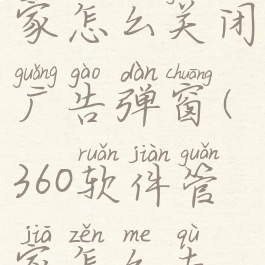 家怎么关闭
guǎng gào dàn chuāng
广告弹窗(
ruǎn jiàn guǎn
360软件管
jiā zěn me qù
家怎么去